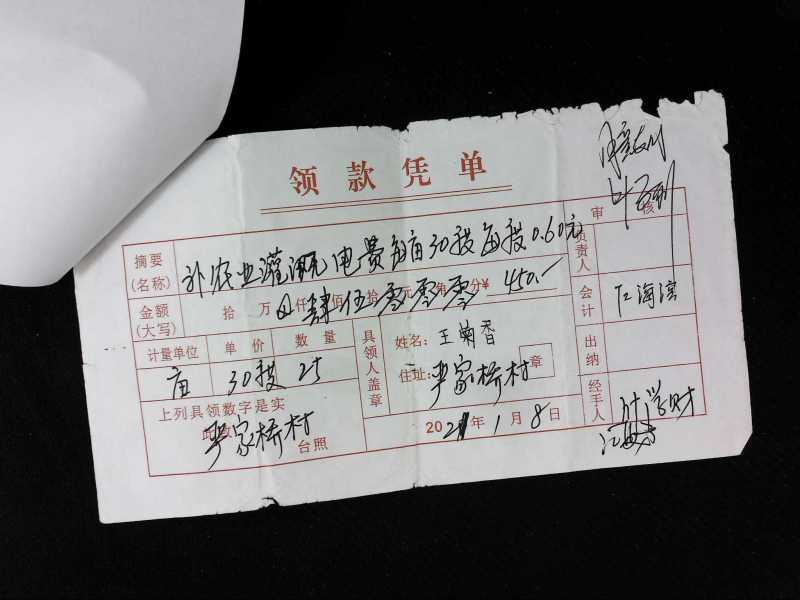 领款凭单
审核
摘要(名称) 补农业灌溉电费每亩30度每度0.60元
负责人
金额(大写) 拾万⊗仟肆佰伍拾零元零角零分¥450.—
会计 江海滨
计量单位 单价 数量
亩 30度 25
具领人盖章
姓名:王菊香
住址:严家桥村 章
出纳
上列具领数字是实
此致
严家桥村 台照
2021年1月8日
经手人 叶学财